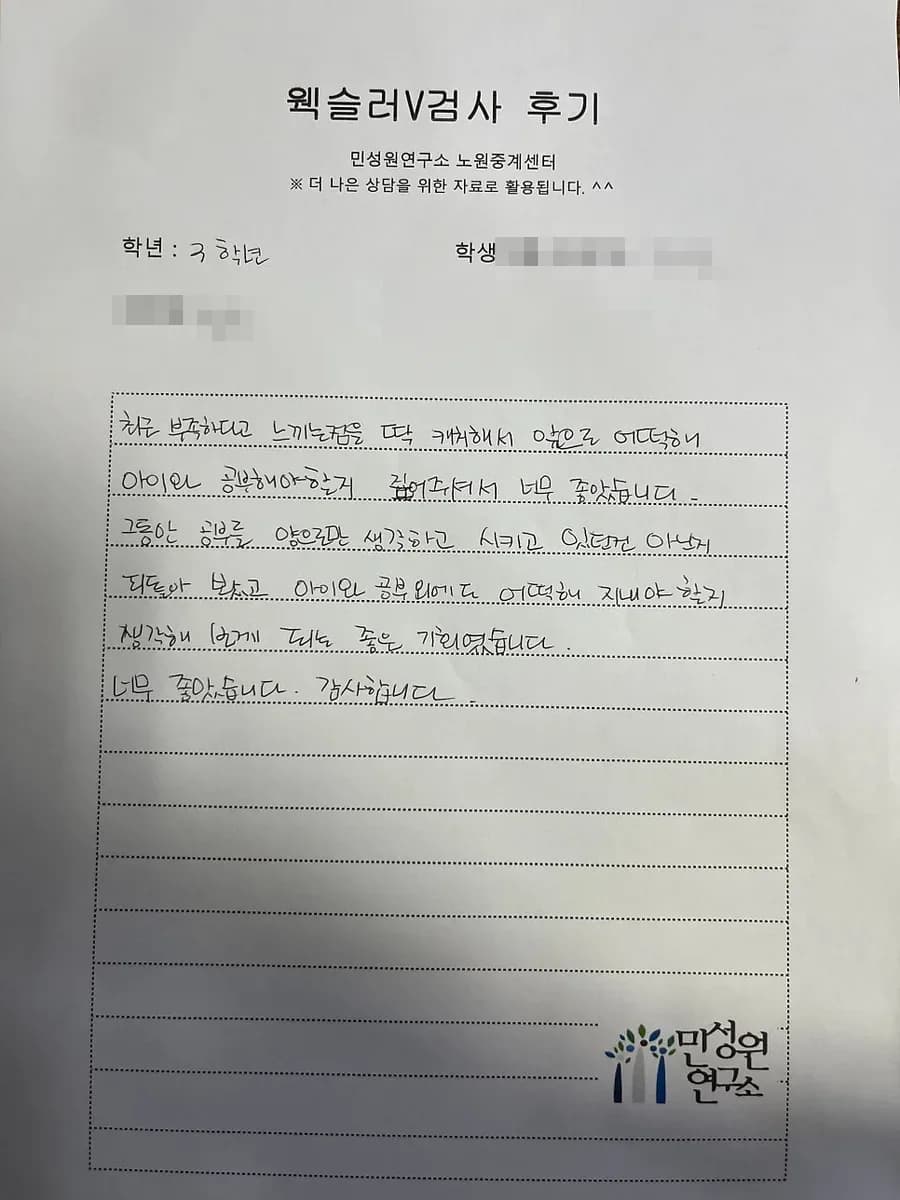 웩슬러V검사 후기
민성원연구소 노원중계센터
※ 더 나은 상담을 위한 자료로 활용됩니다. ^^
학년 : 3학년
학생
최근 부족하다고 느끼는점을 딱 캐치해서 앞으로 어떡해
아이와 공부해야할지 짚어주셔서 너무 좋았습니다.
그동안 공부를 양으로만 생각하고 시키고 있던건 아닌지
되돌아 봤고 아이와 공부외에도 어떡해 지내야 할지
생각해 보게 되는 좋은 기회였습니다.
너무 좋았습니다. 감사합니다.
민성원
연구소